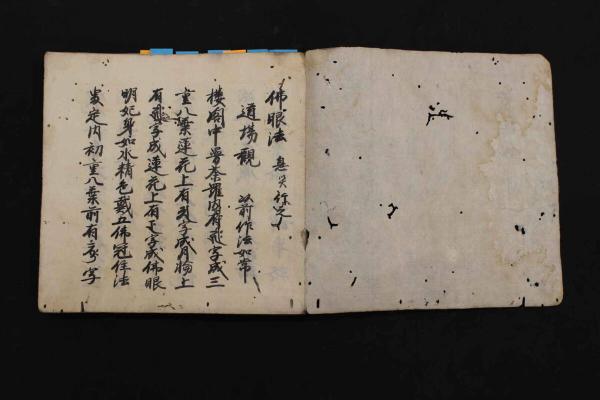 佛眼法
道場觀 以前作法如常
樓閣中曼荼羅内有字成三
重八葉蓮花上有字成月輪上
有字成蓮花上有字成佛眼
明妃身如水精色戴五佛冠住法
界定内初重八葉前有字